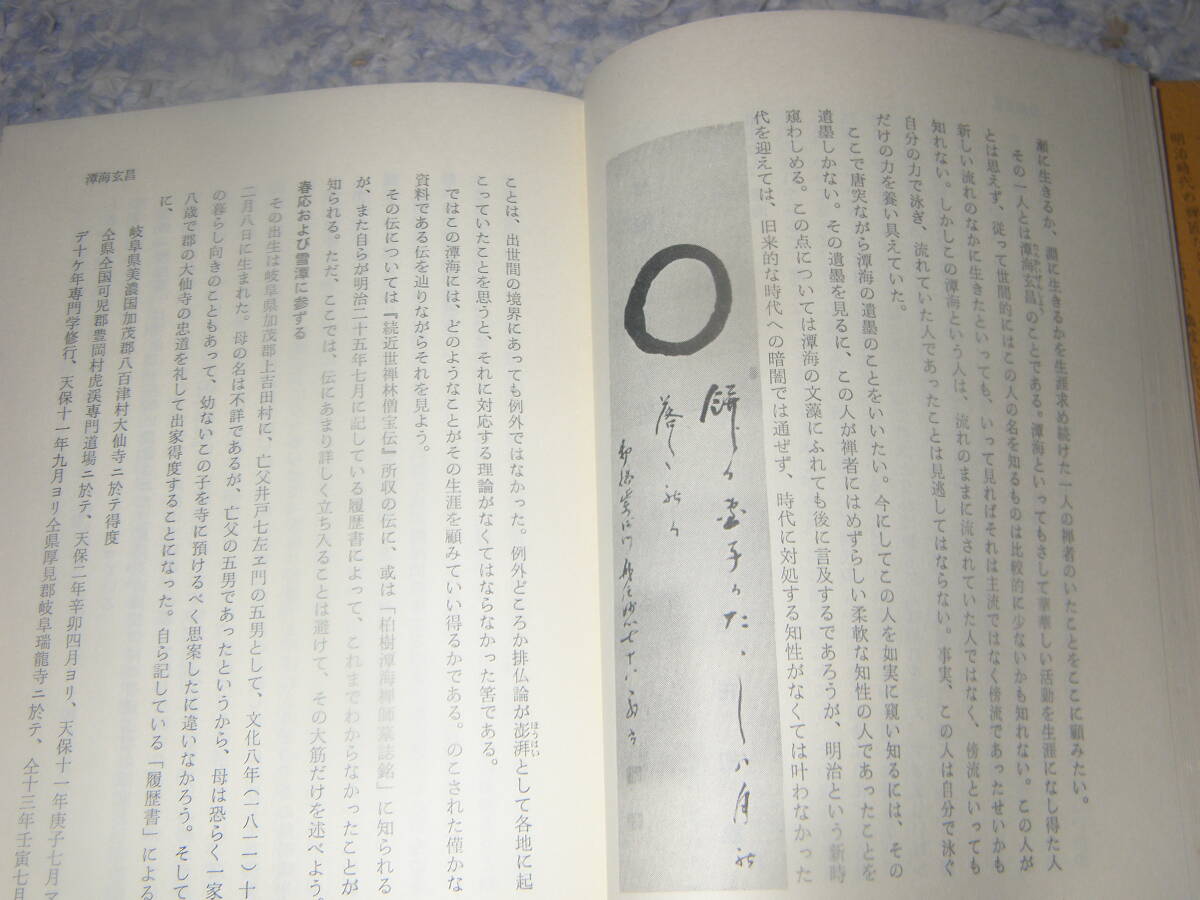 瀬に生きるか、淵に生きるかを生涯求め続けた一人の禅者のいたことをここに顧みたい。
その一人とは潭海玄昌のことである。潭海といってもさして華華しい活動を生涯になし得た人
とは思えず、従って世間的にはこの人の名を知るものは比較的に少ないかも知れない。この人が
新しい流れのなかに生きたといっても、いって見ればそれは主流ではなく傍流であったせいかも
知れない。しかしこの潭海という人は、流れのままに流されていた人ではなく、傍流といっても
自分の力で泳ぎ、流れていた人であったことは見逃してはならない。事実、この人は自分で泳ぐ
だけの力を養い具えていた。
ここで唐突ながら潭海の遺墨のことをいいたい。今にしてこの人を如実に窺い知るには、その
遺墨しかない。その遺墨を見るに、この人が禅者にはめずらしい柔軟な知性の人であったことを
窺わしめる。この点については潭海の文藻にふれても後に言及するであろうが、明治という新時
代を迎えては、旧来的な時代への暗闇では通ぜず、時代に対処する知性がなくては叶わなかった
ことは、出世間の境界にあっても例外ではなかった。例外どころか排仏論が澎湃として各地に起
ほうはい
こっていたことを思うと、それに対応する理論がなくてはならなかった筈である。
ではこの潭海には、どのようなことがその生涯を顧みていい得るかである。のこされた僅かな
資料である伝を辿りながらそれを見よう。
その伝については『続近世禅林僧宝伝』所収の伝に、或は「柏樹潭海禅師墓誌銘」に知られる
が、また自らが明治二十五年七月に記している履歴書によって、これまでわからなかったことが
知られる。ただ、ここでは、伝にあまり詳しく立ち入ることは避けて、その大筋だけを述べよう。
春応および雪潭に参ずる
その出生は岐阜県加茂郡上吉田村に、亡父井戸七左ヱ門の五男として、文化八年(一八一一)十
二月八日に生まれた。母の名は不詳であるが、亡父の五男であったというから、母は恐らく一家
の暮らし向きのこともあって、幼ないこの子を寺に預けるべく思案したに違いなかろう。そして
八歳で郡の大仙寺の忠道を礼して出家得度することになった。自ら記している「履歴書」による
に、
岐阜県美濃国加茂郡八百津村大仙寺ニ於テ得度
仝県仝国可児郡豊岡村虎渓専門道場ニ於テ、天保二年辛卯四月ヨリ、天保十一年庚子七月マ
デ十ケ年専門学修行、天保十一年九月ヨリ仝県厚見郡岐阜瑞龍寺ニ於テ、仝十三年壬寅七月
潭海玄昌